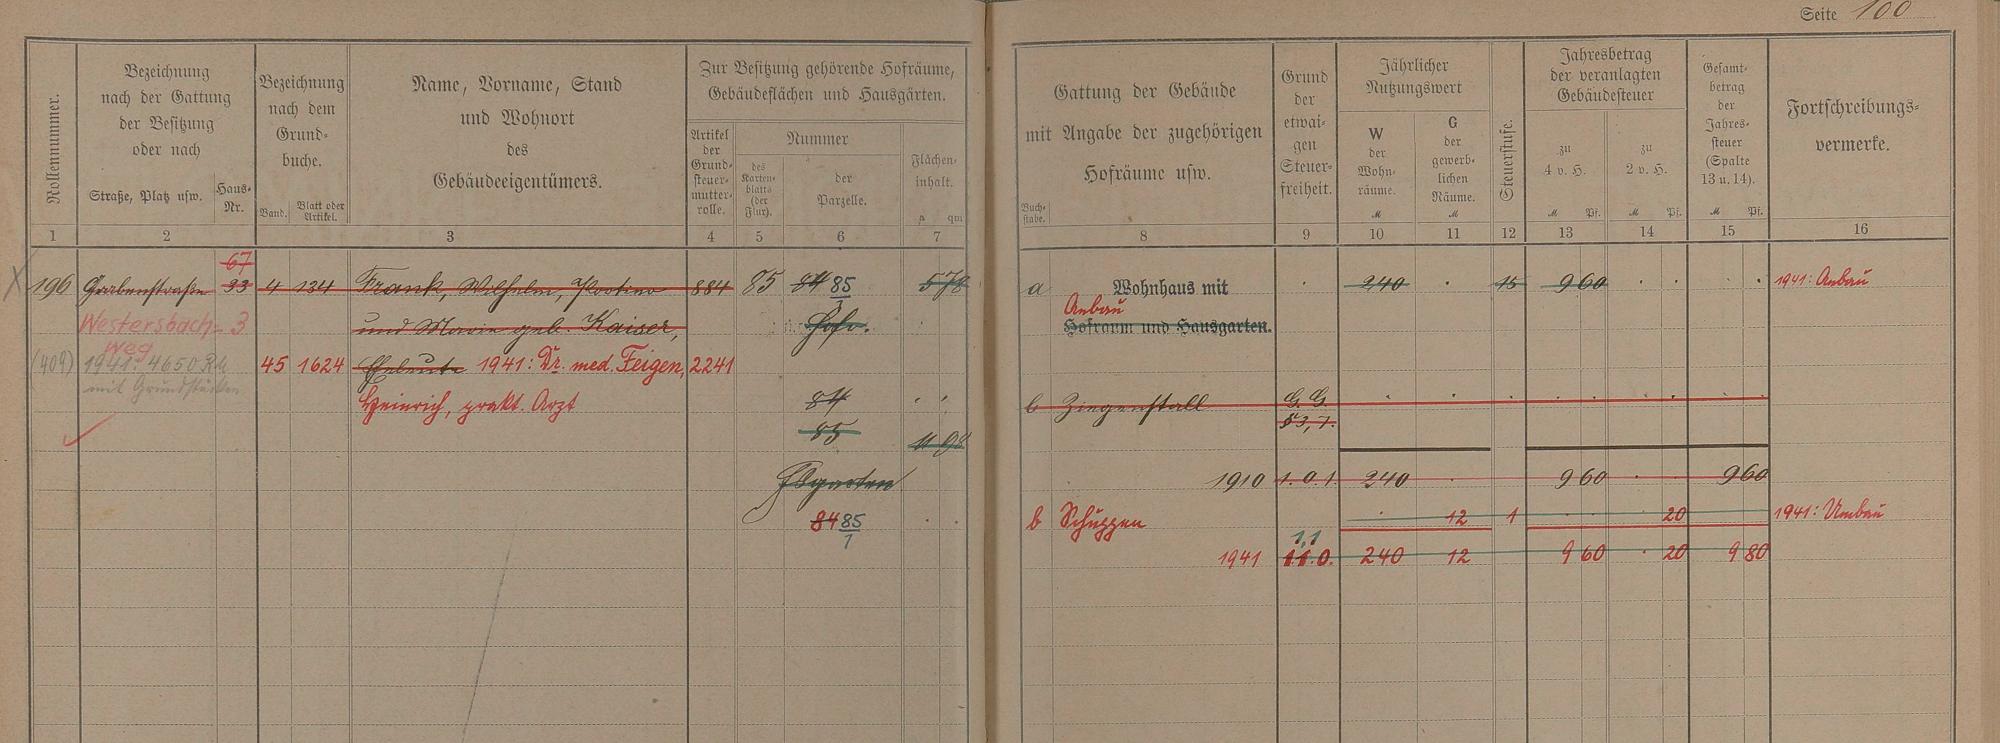 Seite 100
Rollennummer.
Bezeichnung
nach der Gattung
der Besitzung
oder nach
Straße, Platz usw.
Haus-
Nr.
Bezeichnung
nach dem
Grund-
buche.
Band.
Blatt oder
Artikel.
Name, Vorname, Stand
und Wohnort
des
Gebäudeeigentümers.
Zur Besitzung gehörende Hofräume,
Gebäudeflächen und Hausgärten.
Artikel
der
Grund-
steuer-
mutter-
rolle.
Nummer
des
Karten-
blatts
(der
Flur).
der
Parzelle.
Flächen-
inhalt.
a qm
Gattung der Gebäude
mit Angabe der zugehörigen
Hofräume usw.
Buch-
stabe.
Grund
der
etwai-
gen
Steuer-
freiheit.
Jährlicher
Nutzungswert
W
der
Wohn-
räume.
M
G
der
gewerb-
lichen
Räume.
M
Steuerstufe.
Jahresbetrag
der veranlagten
Gebäudesteuer
zu
4 v. H.
M Pf.
zu
2 v. H.
M Pf.
Gesamt-
betrag
der
Jahres-
steuer
(Spalte
13 u. 14).
M Pf.
Fortschreibungs-
vermerke.
1 2 3 4 5 6 7 8 9 10 11 12 13 14 15 16
67
196 Grabenstraße 33 4 134 Frank, Wilhelm, 884 85 84 85/1 578 a Wohnhaus mit 240 15 9 60 1941: Anbau
Anbau
Westersbach- 3 und Marie geb. Kaiser, Hofr. Hofraum und Hausgarten.
weg
(409) 1941: 4650 RM 45 1624 Eheleute 1941: Dr. med. Feigen, 2241
mit Grundstücken
Heinrich, prakt. Arzt 84 b Ziegenstall G. G.
§3,7.
85 11 98
Hsgarten 1910 1. 0. 1. 240 9 60 9 60
84 85/1 b Schuppen 12 1 20 1941: Umbau
1.1
1941 1.1.0. 240 12 9 60 20 9 80